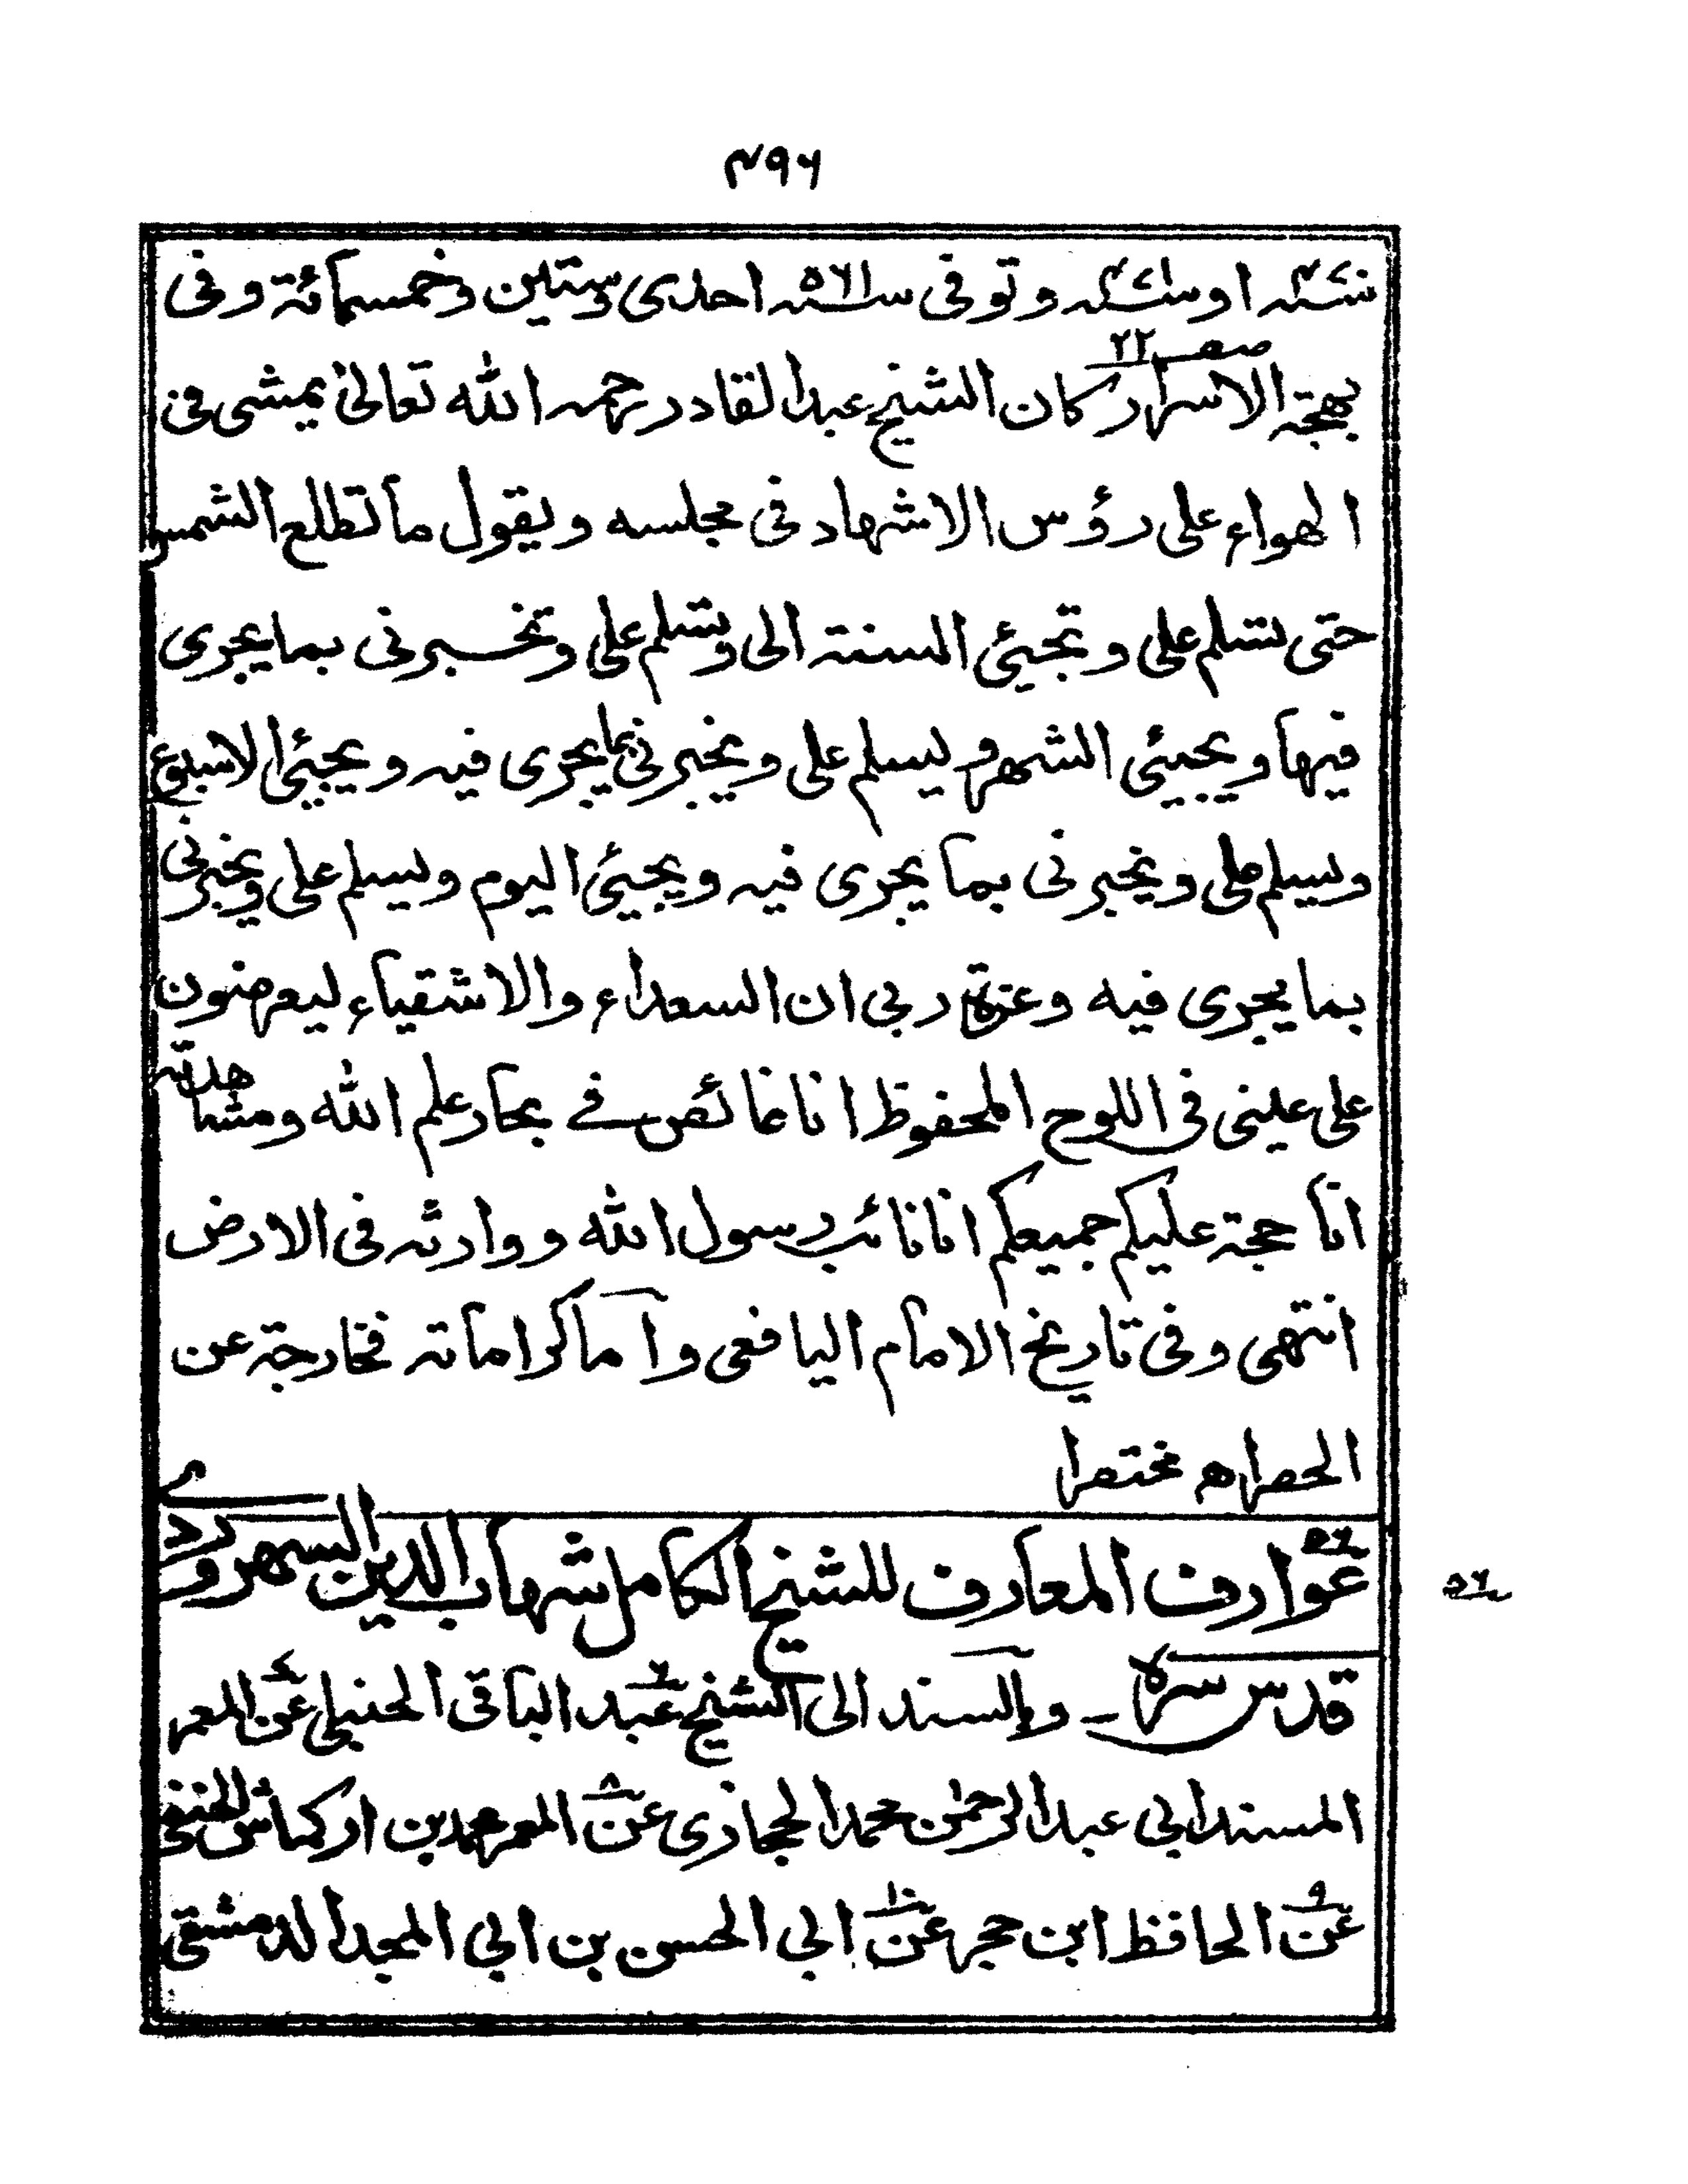 ۴۹۶
سنة ۴۷۰ او سنة ۴۷۱ وتوفى سنة ۵۶۱ احدى وستين وخمسمائة وفى
بهجة الاسرار صفـ ۲۲ كان الشيخ عبد القادر رحمه الله تعالىٰ يمشى فى
الهواء على رؤس الاشهاد فى مجلسه ويقول ما تطلع الشمس
حتى تسلم على وتجيئ السنة الى وتسلم على وتخبرنى بما يجرى
فيها ويجيئ الشهر ويسلم على ويخبرنى بما يجرى فيه ويجيئ الاسبوع
ويسلم على ويخبرنى بما يجرى فيه ويجيئ اليوم ويسلم على ويخبرنى
بما يجرى فيه وعزة ربى ان السعداء والاشقياء ليعرضون
على عينى فى اللوح المحفوظ انا غائص فے بحار علم الله ومشاهدته
انا حجة عليكم جميعكم انا نائب رسول الله ووارثه فى الارض
انتهى وفى تاريخ الامام اليافعى واما كراماته فخارجة عن
الحصر اھ مختصرا
۵۶ عوارف المعارف للشيخ الكامل شهاب الدين السهروردے
۵۶
قدس سره - وبالسند الى الشيخ ۶ عبد الباقى الحنبلى ۷ عن المعمر
المسند ابى عبد الرحمٰن محمد الحجازى ۸ عن المعمر محمد بن اركماش الحنفى
۹ عن الحافظ ابن حجر ۱۰ عن ابى الحسن بن ابى المجد الدمشقى